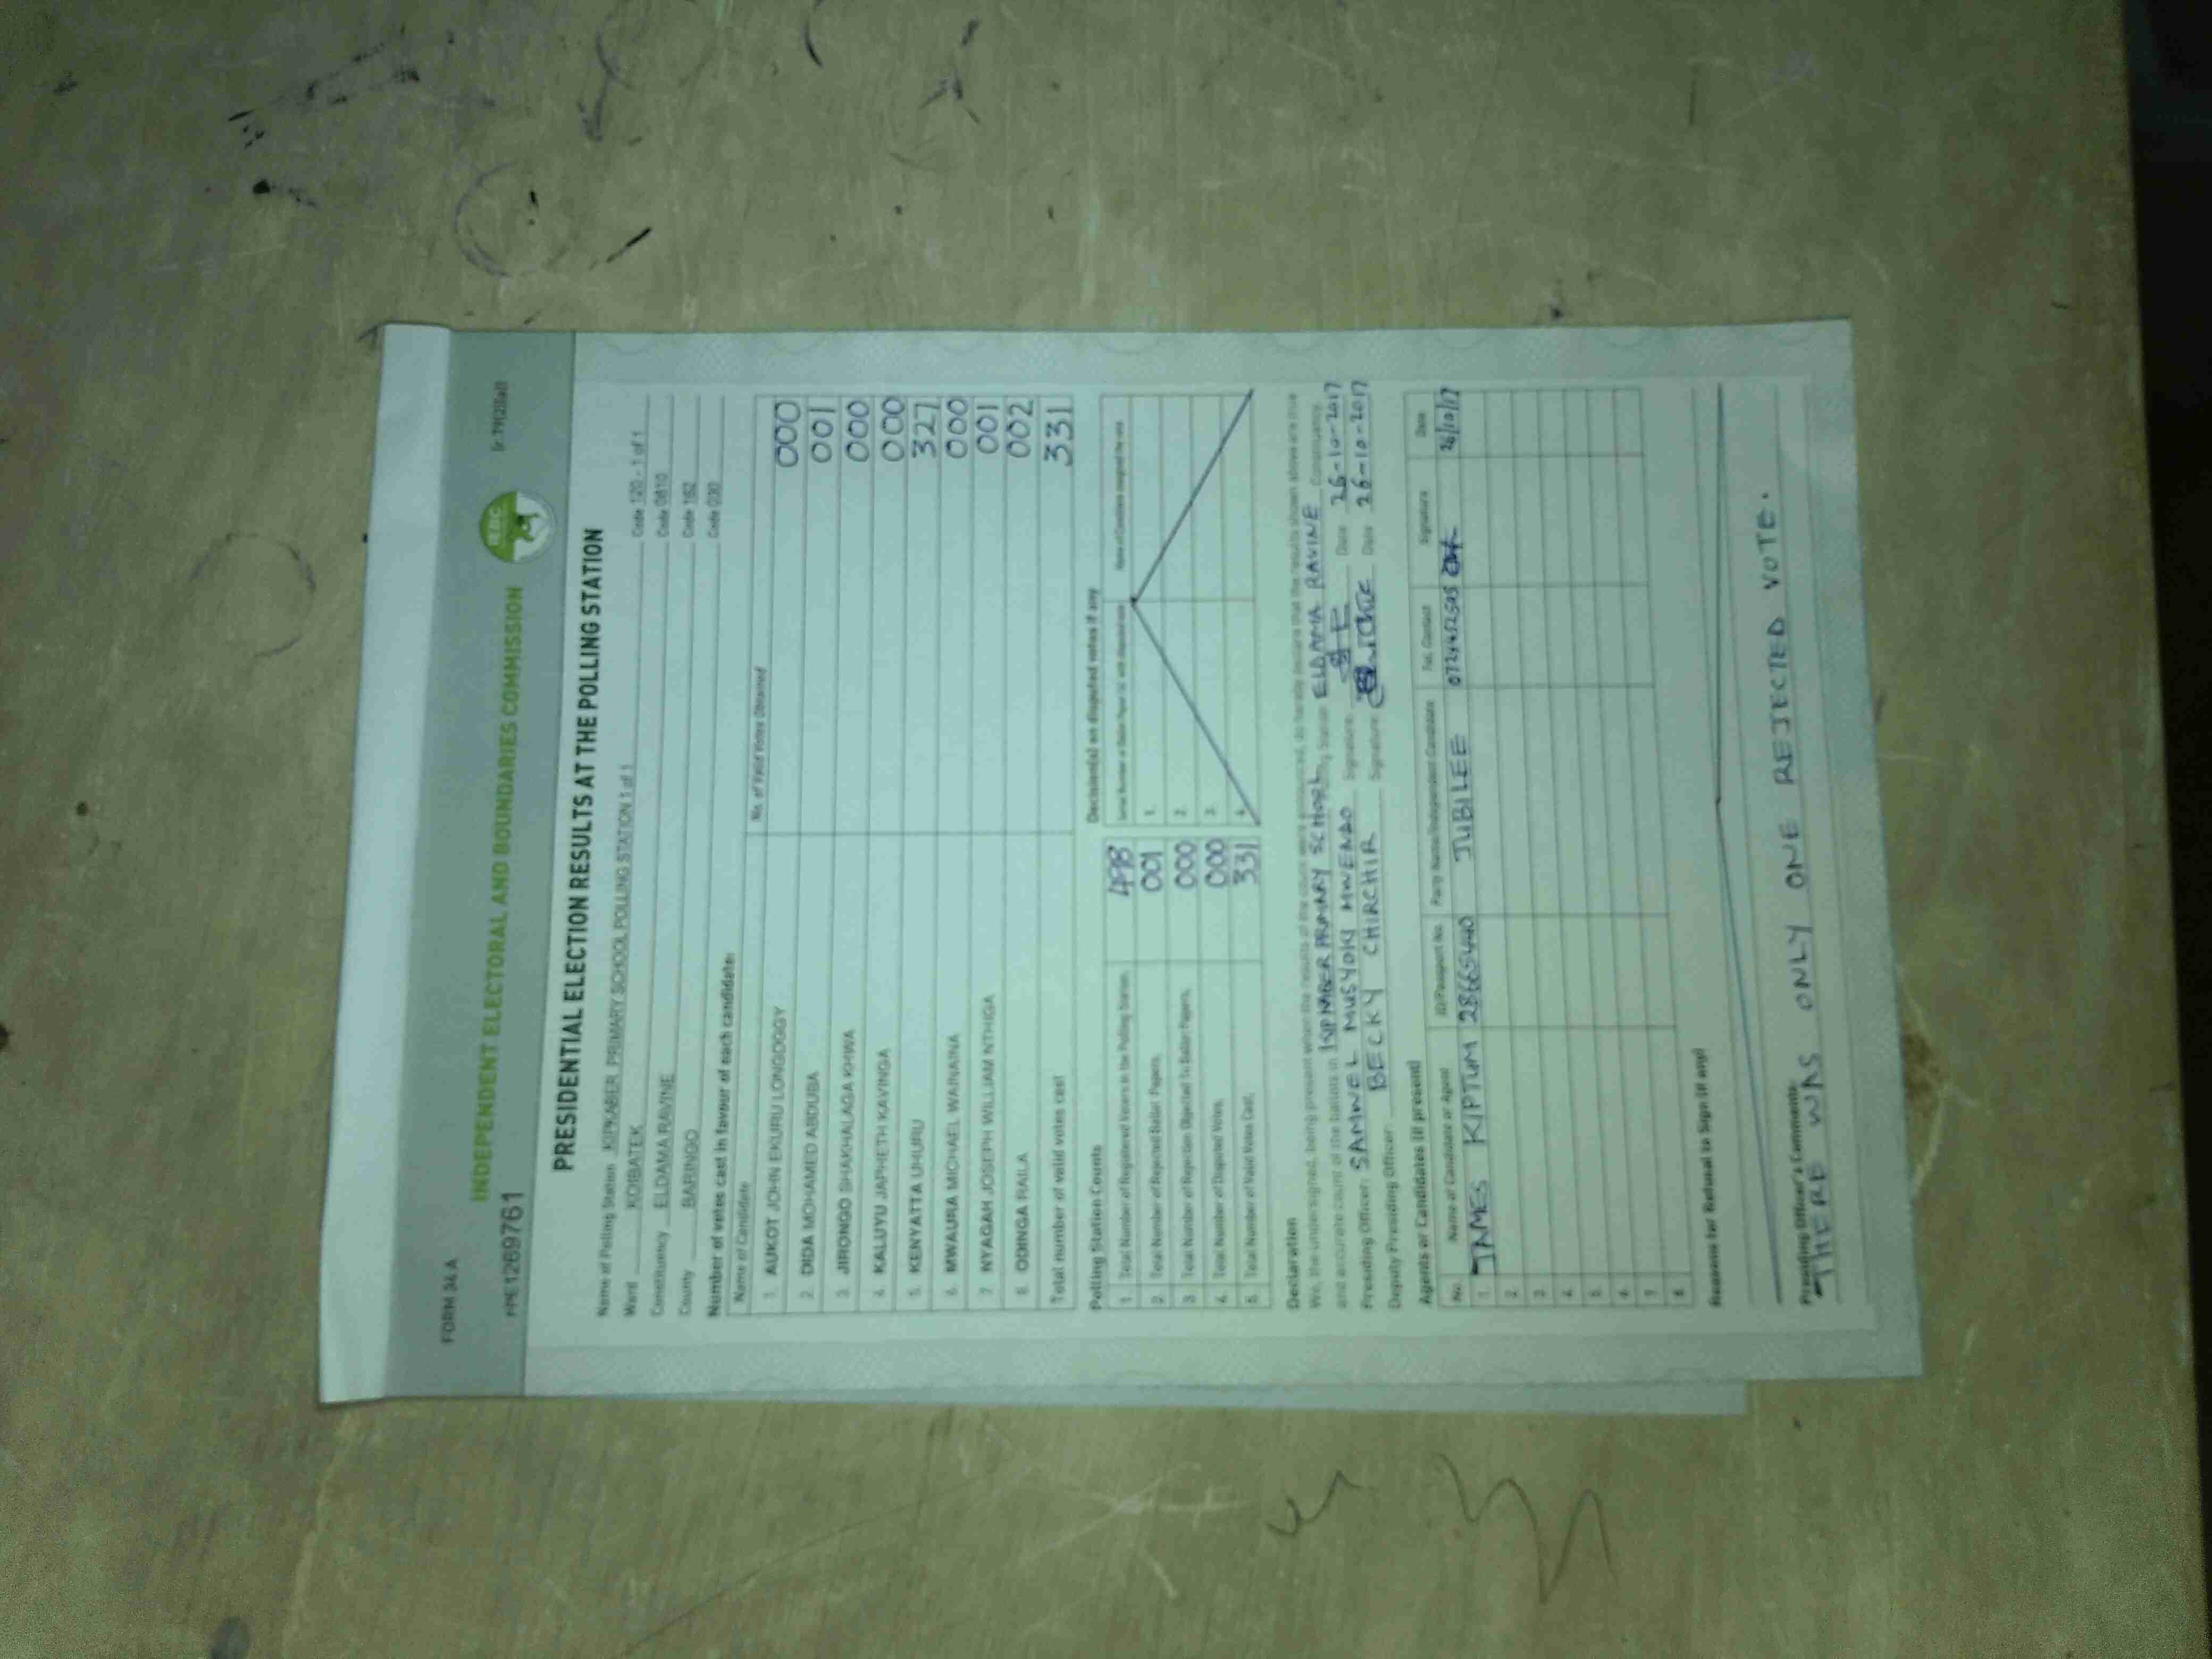 FORM 34 A
INDEPENDENT ELECTORAL AND BOUNDARIES COMMISSION
IEBC
PRESIDENTIAL ELECTION RESULTS AT THE POLLING STATION
Name of Polling Station KIPKABER PRIMARY SCHOOL POLLING STATION 1 of 1 Code 120 - 1 of 1
Ward KOIBATEK Code 0810
Constituency ELDAMA RAVINE Code 162
County BARINGO Code 030
Number of votes cast in favour of each candidate:
Name of Candidate No. of Valid Votes Obtained
1. AUKOT JOHN EKURU LONGOGGY 000
2. DIDA MOHAMED ABDUBA 001
3. JIRONGO SHAKHALAGA KHWA 000
4. KALUYU JAPHETH KAVINGA 000
5. KENYATTA UHURU 327
6. MWAURA MICHAEL WAINAINA 000
7. NYAGAH JOSEPH WILLIAM NTHIGA 001
8. ODINGA RAILA 002
Total number of valid votes cast 331
Polling Station Counts
1. Total Number of Registered Voters in the Polling Station
2. Total Number of Rejected Ballot Papers. 001
3. Total Number of Rejection Objected To Ballot Papers. 000
4. Total Number of Disputed Votes. 000
5. Total Number of Valid Votes Cast. 331
Decision(s) on disputed votes if any
1.
2.
3.
4.
Declaration
We, the undersigned, being present when the results of the count were announced, do hereby declare that the results shown above are true
and accurate count of the ballots in PRIMARY SCHOOL Polling Station ELDAMA RAVINE Constituency.
Presiding Officer: MUSYOKI MWENDO Signature: Date 26-10-2017
Deputy Presiding Officer: BECKY CHIRCHIR Signature: Date 26-10-2017
Agents or Candidates (if present)
No. Name of Candidate or Agent ID/Passport No. Party Name/Independent Candidate Tel. Contact Signature Date
1. JAMES KIPTUM JUBILEE 26/10/17
2.
3.
4.
5.
6.
7.
8.
Reasons for Refusal to Sign (if any)
Presiding Officer's Comments:
THERE WAS ONLY ONE REJECTED VOTE.